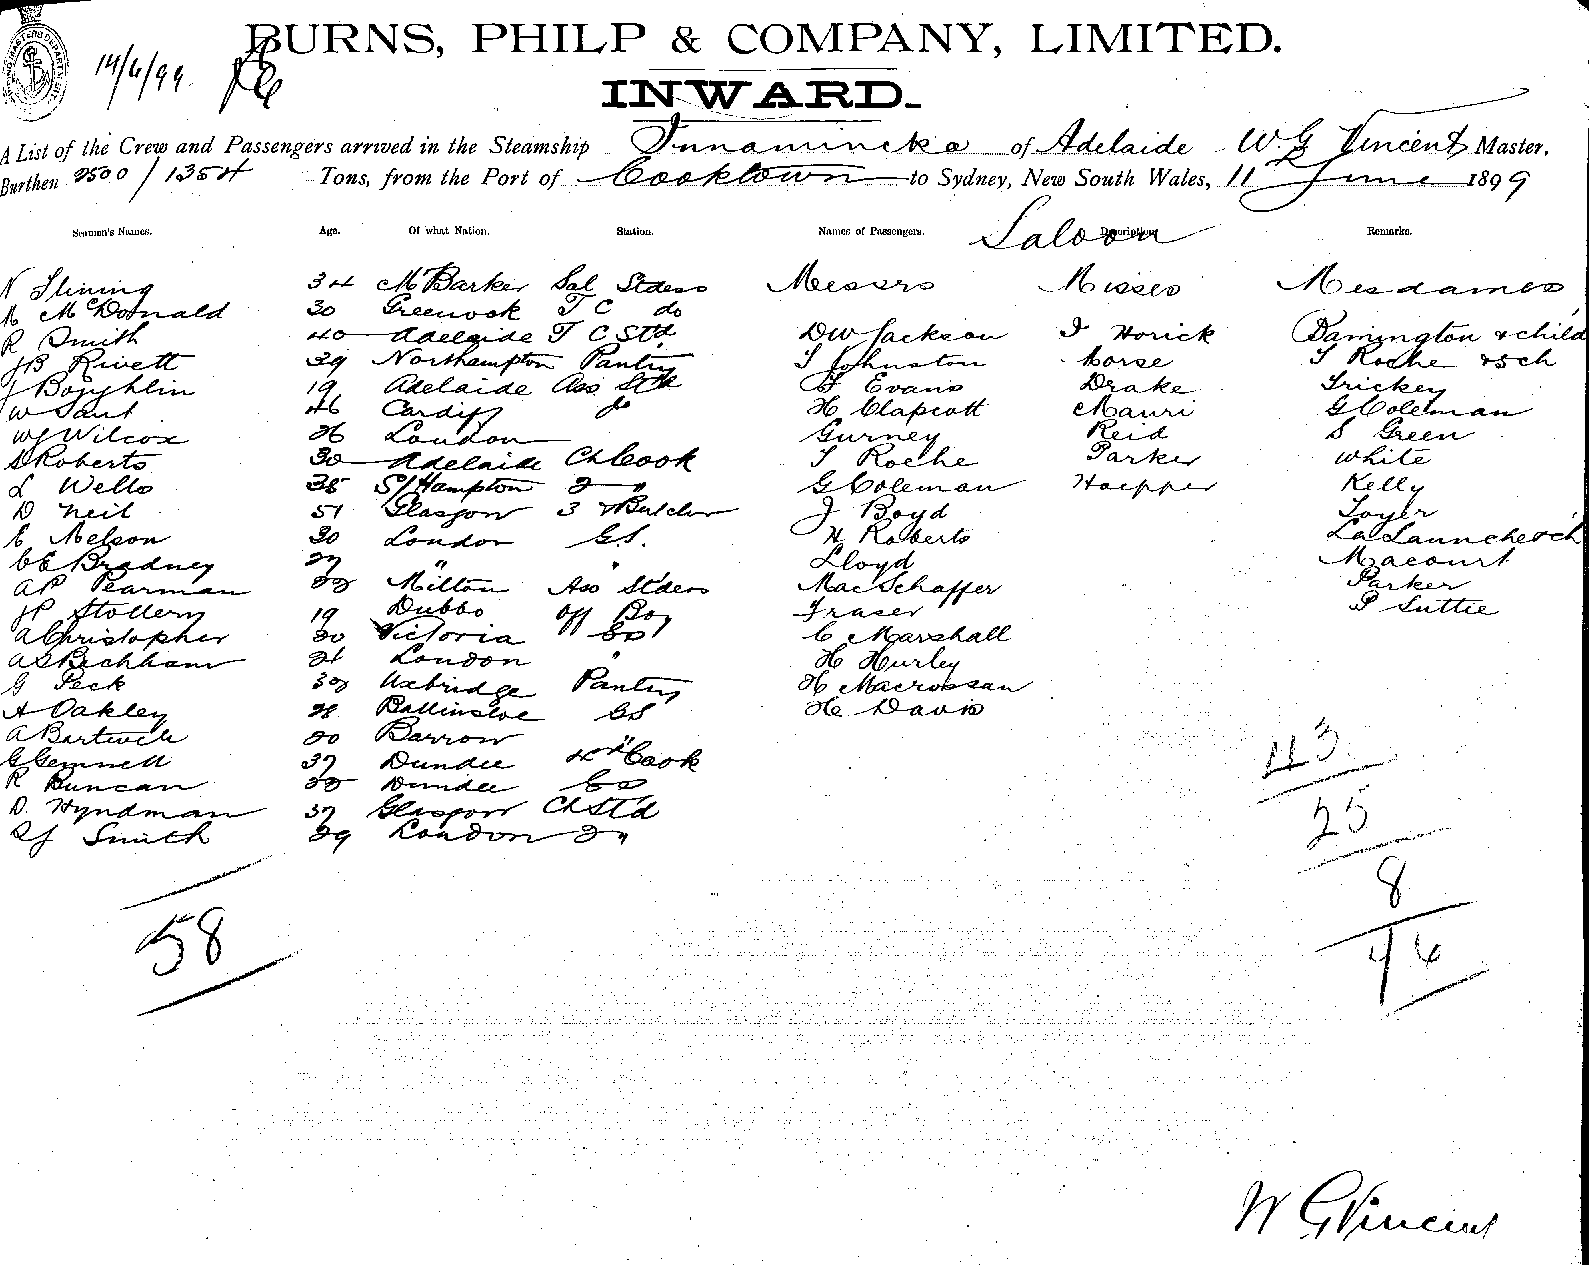 BURNS, PHILP & COMPANY, LIMITED.
14/6/99
INWARD.
A List of the Crew and Passengers arrived in the Steamship Innamincka of Adelaide W. G Vincent Master,
Burthen 2500 / 1354 Tons, from the Port of Cooktown to Sydney, New South Wales, 11 June 1899
Seamen's Names. Age. Of what Nation. Station. Names of Passengers. Description. Remarks.
Saloon
34 M Barker Sal Stdess Messrs Misses Mesdames
McDonald 30 Greenock T C do
R Smith 40 Adelaide T C Std D W Jackson I Horick Barrington & child
J B Rivett 39 Northampton Pantry T Johnston Morse T Roche & 5 ch
19 Adelaide Ass Std Evans Drake Trickey
46 Cardiff do H Clapcott Mauri G Coleman
W J Wilcox 26 London Gurney Reid S Green
S Roberts 30 Adelaide Ch Cook T Roche Parker White
L Wells 38 S/Hampton 2 " G Coleman Hoepper Kelly
D Neil 51 Glasgow 3 & Butcher J Boyd Toyer
E Nelson 30 London G.S. H Roberts
C E Bradney 27 " " Lloyd Macourt
A P Pearman 22 Milton Ass Stdess MacSchaffer Parker
J P Stollery 19 Dubbo Off Boy Fraser P Suttie
A Christopher 20 Victoria C Marshall
A S Beckham 21 London " H Hurley
G Peck 32 Uxbridge Pantry H Macrossan
A Oakley 28 Ballinsloe GS H Davis
20 Barrow "
G Gemmell 37 Dundee 4th Cook
R Duncan Dundee
D. Hyndman 37 Glasgow Ch Std
Smith 29 London 2 "
43
25
8
58
76
W G Vincent